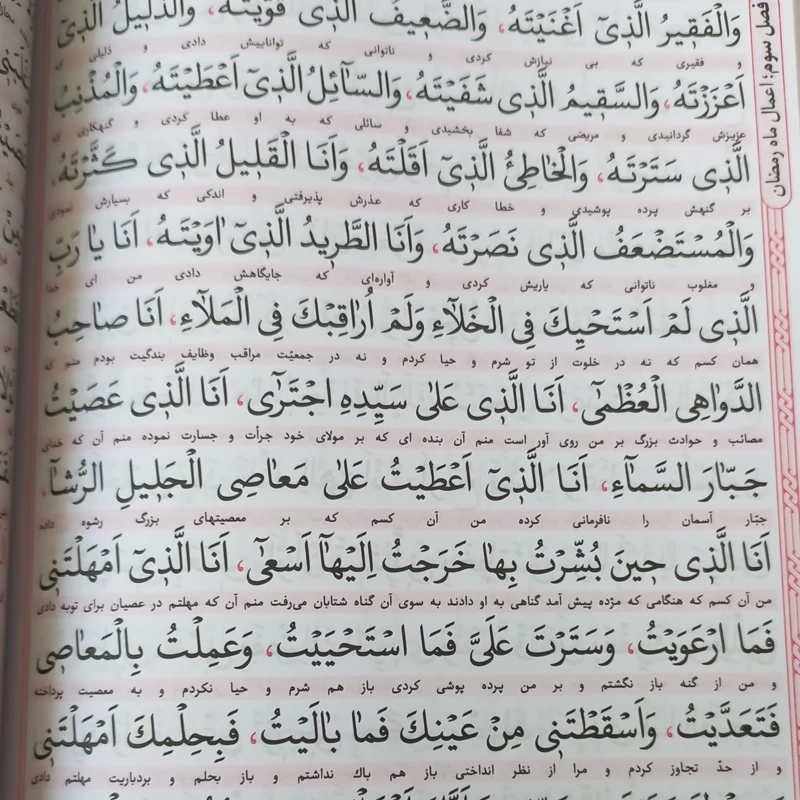 وَالْفَقيرُ الَّذىٓ اَغْنَيْتَهُ، وَالضَّعيفُ الَّذى قَوَّيْتَهُ، وَالذَّليلُ الَّذىٓ
و فقیری که بی نیازش کردی و ناتوانی که تواناییش دادی و ذلیلی که
اَعْزَزْتَهُ، وَالسَّقيمُ الَّذى شَفَيْتَهُ، وَالسّآئِلُ الَّذىٓ اَعْطَيْتَهُ، وَالْمُذْنِبُ
عزیزش گردانیدی و مریضی که شفا بخشیدی و سائلی که به او عطا کردی و گنهکاری که
الَّذى سَتَرْتَهُ، وَالْخاطِئُ الَّذىٓ اَقَلْتَهُ، وَاَنَا الْقَليلُ الَّذى كَثَّرْتَهُ،
بر گنهش پرده پوشیدی و خطا کاری که عذرش پذیرفتی و اندکی که بسیارش نمودی
وَالْمُسْتَضْعَفُ الَّذى نَصَرْتَهُ، وَاَنَا الطَّريدُ الَّذىٓ اٰوَيْتَهُ، اَنَا يا رَبِّ
و مغلوب ناتوانی که یاریش کردی و آواره‌ای که جایگاهش دادی من ای خدا
الَّذى لَمْ اَسْتَحْيِكَ فِى الْخَلآءِ وَلَمْ اُراقِبْكَ فِى الْمَلآءِ، اَنَا صاحِبُ
همان کسم که نه در خلوت از تو شرم و حیا کردم و نه در جمعیّت مراقب وظایف بندگیت بودم منم که
الدَّواهِى الْعُظْمىٓ، اَنَا الَّذى عَلىٰ سَيِّدِهِ اجْتَرٰىٓ، اَنَا الَّذى عَصَيْتُ
مصائب و حوادث بزرگ بر من روی آور است منم آن بنده ای که بر مولای خود جرأت و جسارت نموده منم آن که خدای
جَبّارَ السَّمآءِ، اَنَا الَّذىٓ اَعْطَيْتُ عَلىٰ مَعاصِى الْجَليلِ الرُّشآ،
جبّار آسمان را نافرمانی کرده من آن کسم که بر معصیتهای بزرگ رشوه داده
اَنَا الَّذى حينَ بُشِّرْتُ بِها خَرَجْتُ اِلَيْهآ اَسْعىٓ، اَنَا الَّذىٓ اَمْهَلْتَنى
من آن کسم که هنگامی که مژده پیش آمد گناهی به او دادند به سوی آن گناه شتابان می‌رفت منم آن که مهلتم در عصیان برای توبه دادی
فَمَا ارْعَوَيْتُ، وَسَتَرْتَ عَلَىَّ فَمَا اسْتَحْيَيْتُ، وَعَمِلْتُ بِالْمَعاصى
و من از گنه باز نگشتم و بر من پرده پوشی کردی باز هم شرم و حیا نکردم و به معصیت پرداخته
فَتَعَدَّيْتُ، وَاَسْقَطْتَنى مِنْ عَيْنِكَ فَما بالَيْتُ، فَبِحِلْمِكَ اَمْهَلْتَنى
و از حدّ تجاوز کردم و مرا از نظر انداختی باز هم باک نداشتم و باز بحلم و بردباریت مهلتم دادی
فصل سوم: اعمال ماه رمضان